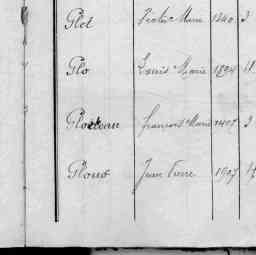 Glet Marie 1840 3
Glo Louis Marie 1894
Gloteau François Marie 1407 3
Glous Jean Pierre 1907